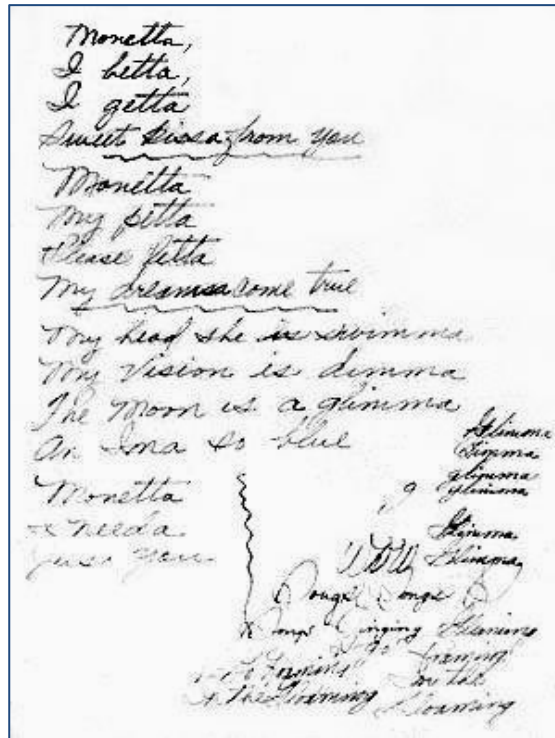 Monetta,
I betta,
I getta
Sweet kissa from you
Monetta
My petta
Please letta
My dreamsa come true
My head she is swimma
My vision is dimma
The moon is a glimma
An Ima so blue
Monetta
I needa
just you
Glimma
Dimma
glimma
glimma
g
Glimma
Glimma
Songs
Singing
"Go"
The Gloaming
Gloaming